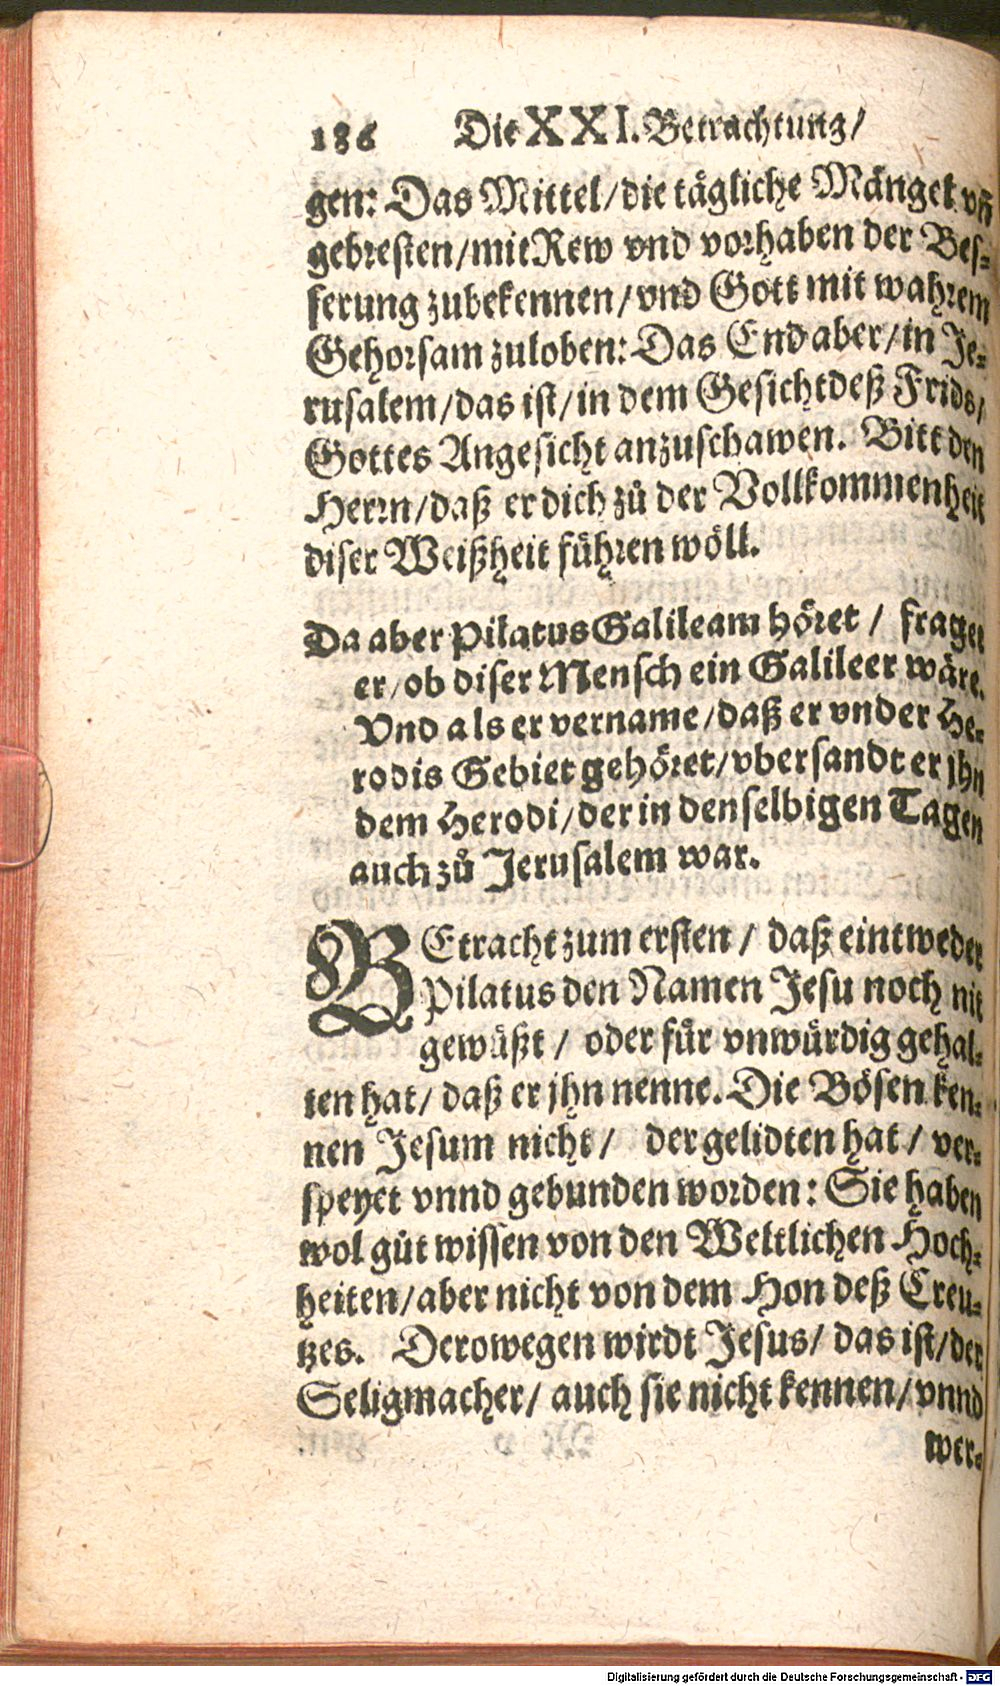 186 Die XXI. Betrachtung/
gen: Das Mittel/die tägliche Mängel vñ
gebresten/mit Rew vnd vorhaben der Bes-
serung zubekennen/vnd Gott mit wahrem
Gehorsam zuloben: Das End aber/in Je-
rusalem/das ist/in dem Gesicht deß Frids/
Gottes Angesicht anzuschawen. Bitt den
Herrn/daß er dich zů der Vollkommenheit
diser Weißheit führen wöll.
Da aber Pilatus Galileam höret / fraget
er/ob diser Mensch ein Galileer wäre.
Vnd als er vername/daß er vnder He-
rodis Gebiet gehöret/vbersandt er jhn
dem Herodi/der in denselbigen Tagen
auch zů Jerusalem war.
BEtracht zum ersten / daß eintweder
Pilatus den Namen Jesu noch nit
gewüßt / oder für vnwürdig gehal-
ten hat/ daß er jhn nenne. Die Bösen ken-
nen Jesum nicht/ der gelidten hat/ ver-
speyet vnnd gebunden worden: Sie haben
wol gůt wissen von den Weltlichen Hoch-
heiten/aber nicht von dem Hon deß Creu-
tzes. Derowegen wirdt Jesus/ das ist/der
Seligmacher/ auch sie nicht kennen/vnnd
wer-
Digitalisierung gefördert durch die Deutsche Forschungsgemeinschaft - DFG